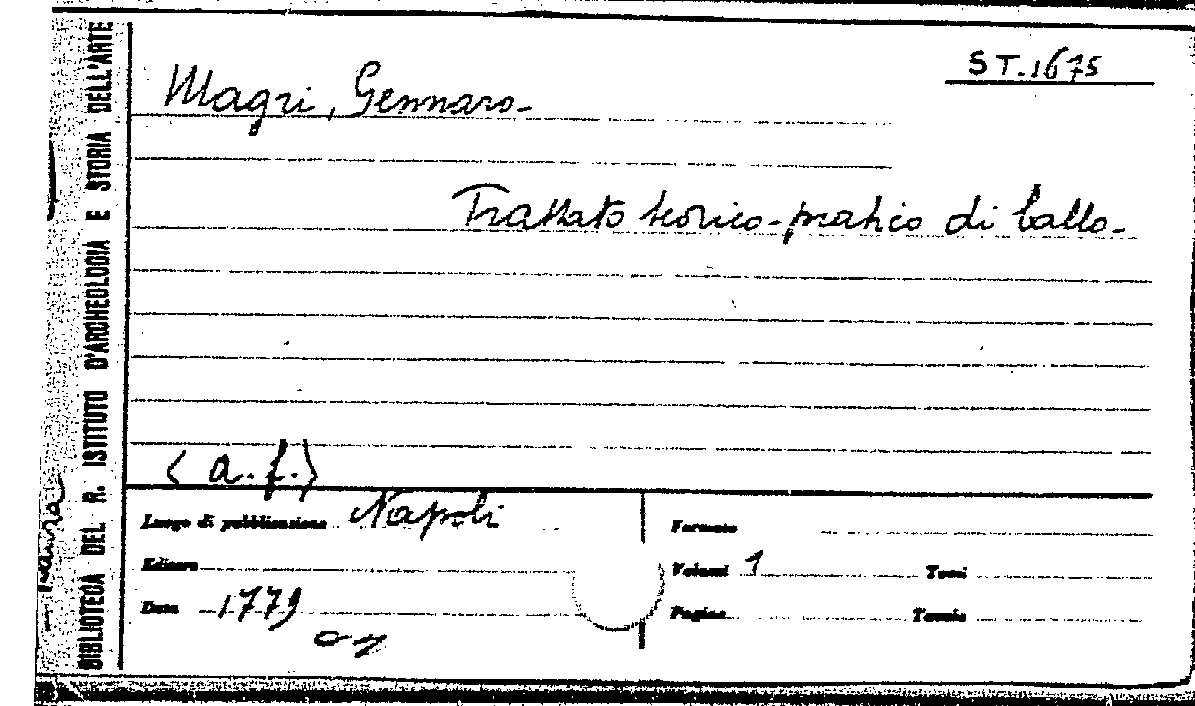 ST.1675
Magri, Gennaro-
Trattato teorico-pratico di ballo-
<a.f.>
Luogo di pubblicazione Napoli
Formato
Editore
Volumi 1 Tomi
Data 1779
Pagine Tavole
BIBLIOTECA DEL R. ISTITUTO D'ARCHEOLOGIA E STORIA DELL'ARTE